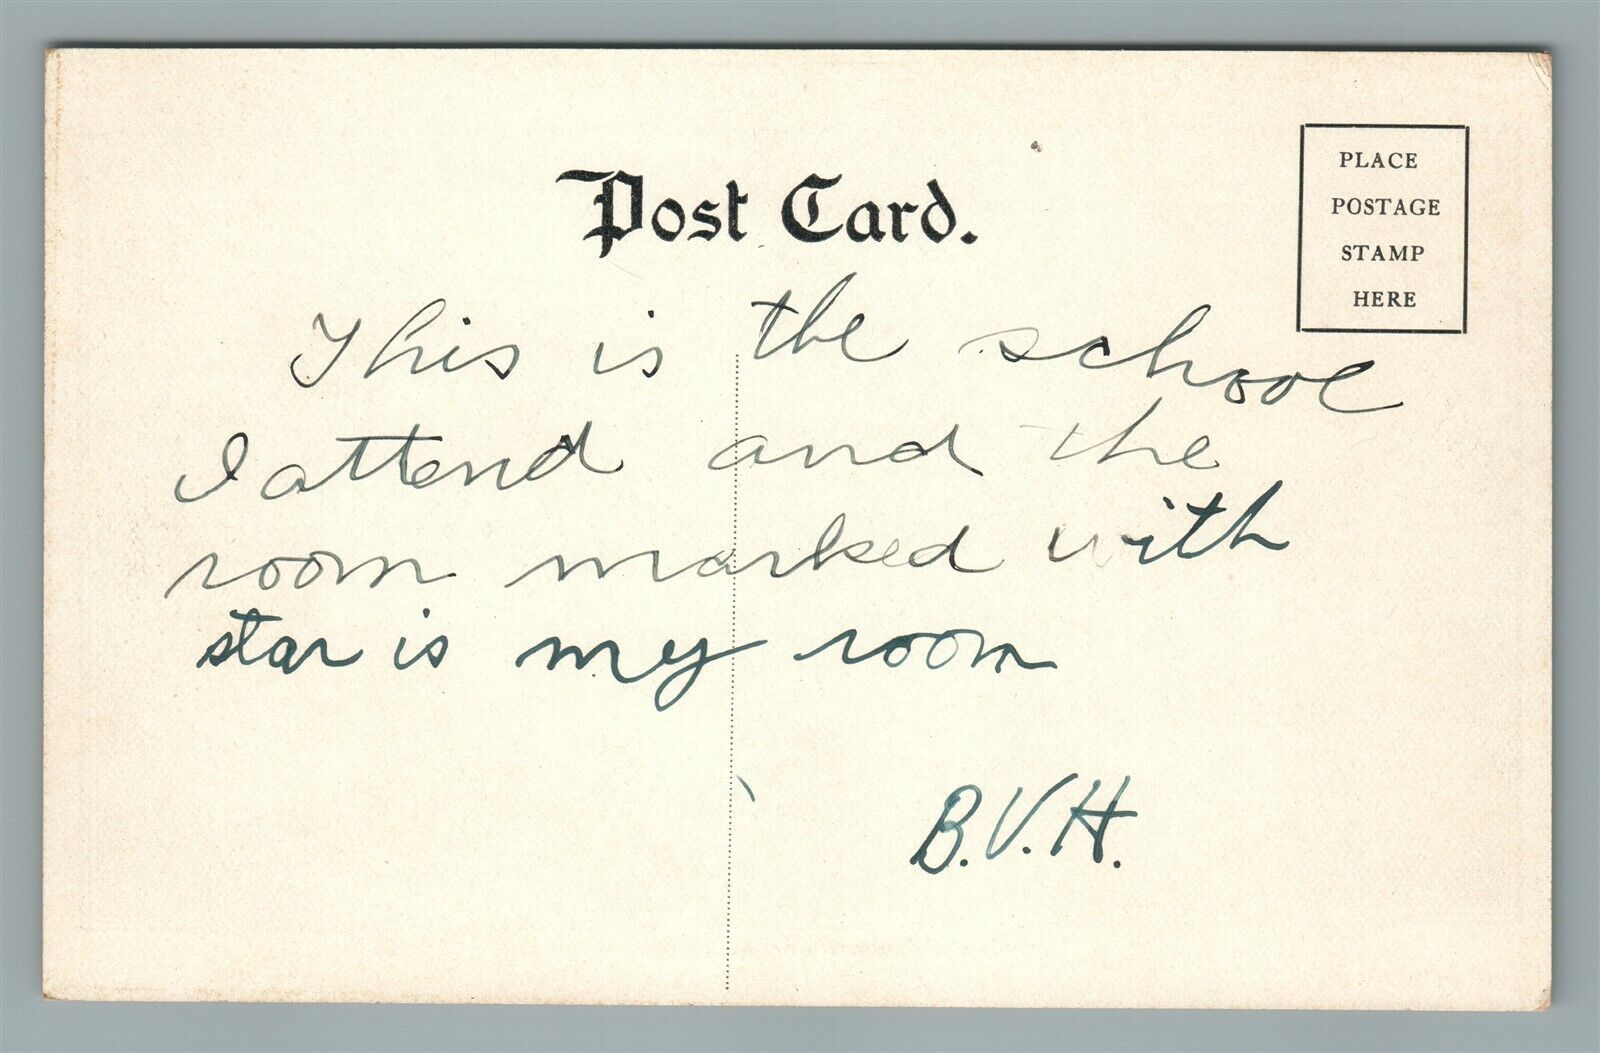 Post Card.
PLACE
POSTAGE
STAMP
HERE
This is the school
I attend and the
room marked with
star is my room
B.V.H.